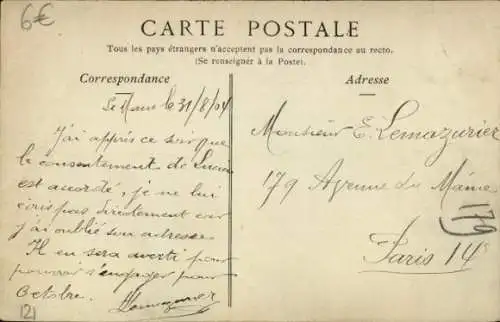 6€
CARTE POSTALE
Tous les pays étrangers n'acceptent pas la correspondance au recto.
(Se renseigner à la Poste).
Correspondance
Le Mans le 31/8/04
J'ai appris ce soir que
le consentement de Lucien
est accordé, je ne lui
écris pas directement car
j'ai oublié son adresse.
Il en sera averti pour
pouvoir s'engager pour
Octobre.
Lemazurier
121
Adresse
Monsieur E. Lemazurier
179 Avenue du Maine
179
Paris 14e